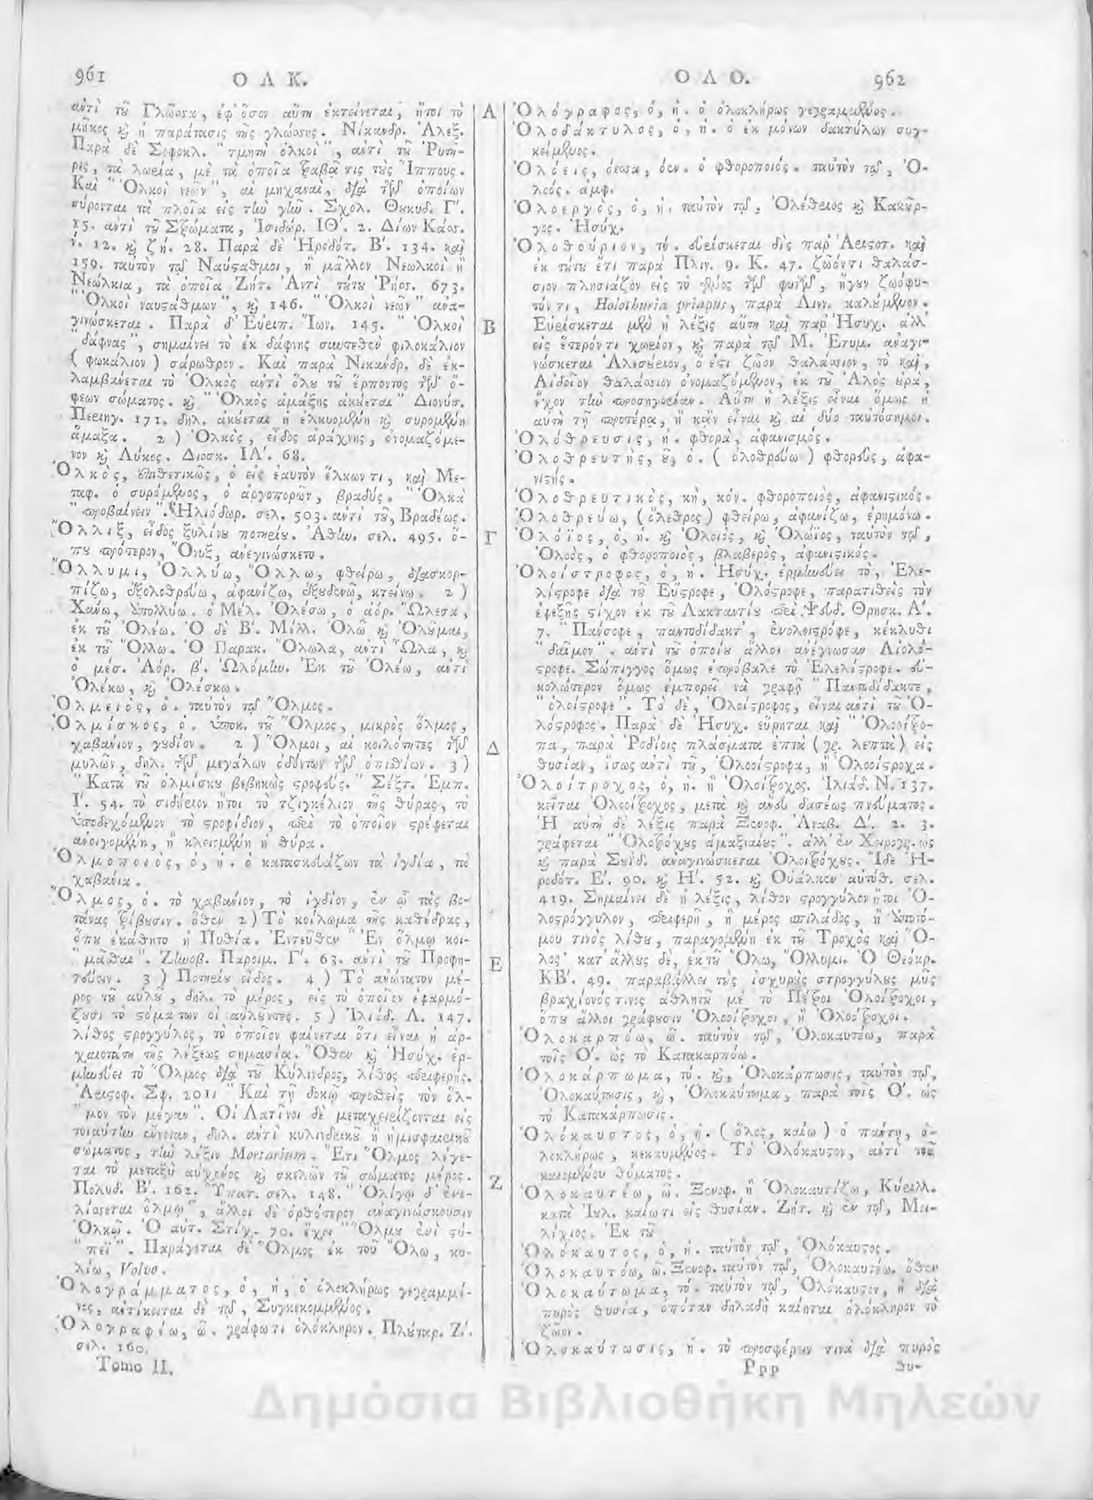 961
Ο Λ Κ.
ἀντὶ τοῦ Γλῶσσα, ἐφ' ὅσον αὕτη ἐκτείνεται, ἤτοι τὸ
μῆκος καὶ ἡ παράτασις τῆς γλώσσης. Νίκανδρ. Ἀλεξ.
Παρὰ δὲ Σοφοκλ. "τμητοὶ ὁλκοὶ", ἀντὶ τοῦ Ῥυτῆ-
ρες, τὰ λωρία, μὲ τὰ ὁποῖα τραβᾷ τις τοὺς Ἵππους.
Καὶ "Ὁλκοὶ νεῶν", αἱ μηχαναὶ, διὰ τῶν ὁποίων
σύρονται τὰ πλοῖα εἰς τὴν γῆν. Σχολ. Θουκυδ. Γ'.
15. ἀντὶ τοῦ Σχώματα, Ἰσιδώρ. ΙΘ'. 2. Δίων Κάσσ.
ν. 12. καὶ ζή. 28. Παρὰ δὲ Ἡροδότ. Β'. 134. καὶ
159. ταὐτὸν τῷ Ναύσταθμοι, ἢ μᾶλλον Νεωλκοὶ ἢ
Νεώλκια, τὰ ὁποῖα Ζήτ. Ἀντὶ τούτου Ῥῆσ. 673.
"Ὁλκοὶ ναυστάθμων", καὶ 146. "Ὁλκοὶ νεῶν" ἀνα-
γινώσκεται. Παρὰ δ' Εὐριπ. Ἴων. 145. "Ὁλκοὶ
"δάφνας", σημαίνει τὸ ἐκ δάφνης συντεθὲν φιλοκάλιον
(φωκάλιον) σάρωθρον. Καὶ παρὰ Νικάνδρ. δὲ ἐκ-
λαμβάνεται τὸ Ὁλκὸς ἀντὶ ὅλου τοῦ ἕρποντος τῶν ὄ-
φεων σώματος. καὶ "Ὁλκὸς ἁμάξης ἀκούεται" Διονύσ.
Περιηγ. 171. δηλ. ἀκούεται ἡ ἑλκυομένη καὶ συρομένη
ἅμαξα. 2) Ὁλκὸς, εἶδος ἀράχνης, ὀνομαζόμε-
νον καὶ Λύκος. Διοσκ. ΙΛ'. 68.
Ὁλκὸς, ἐπιθετικῶς, ὁ εἰς ἑαυτὸν ἕλκων τι, καὶ Με-
ταφ. ὁ συρόμενος, ὁ ἀργοπορῶν, βραδύς. "Ὁλκὰ
"προβαίνειν". Ἡλιόδωρ. σελ. 503. ἀντὶ τοῦ, Βραδέως.
Ὄλλιξ, εἶδος ξυλίνου ποτηρίου. Ἀθήν. σελ. 495. ὅ-
που πρότερον, Ὄνυξ, ἀνεγινώσκετο.
Ὄλλυμι, Ὀλλύω, Ὄλλω, φθείρω, διασκορ-
πίζω, ἐξολοθρεύω, ἀφανίζω, ἐξουδενῶ, κτείνω. 2)
Χάνω, ἀπολλύω. ὁ Μέλ. Ὀλέσω, ὁ ἀόρ. Ὤλεσα,
ἐκ τοῦ Ὀλέω. Ὁ δὲ Β'. Μέλλ. Ὀλῶ καὶ Ὀλοῦμαι,
ἐκ τοῦ Ὄλλω. Ὁ Παρακ. Ὄλωλα, ἀντὶ Ὦλα, καὶ
ὁ μέσ. Ἀόρ. β'. Ὠλόμην. Ἐκ τοῦ Ὀλέω, ἀντὶ
Ὀλέκω, καὶ Ὀλέσκω.
Ὀλμειὸς, ὁ. ταὐτὸν τῷ Ὄλμος.
Ὁλμίσκος, ὁ. ὑποκ. τοῦ Ὅλμος, μικρὸς ὅλμος,
χαβάνιον, γουδίον. 2) Ὅλμοι, αἱ κοιλότητες τῶν
μυλῶν, δηλ. τῶν μεγάλων ὀδόντων τῶν ὀπισθίων. 3)
"Κατὰ τοῦ ὁλμίσκου βεβηκὼς στροφεύς." Σέξτ. Ἐμπ.
Ι'. 54. τὸ σιδήριον ἤτοι τὸ τζιγκέλιον τῆς θύρας, τὸ
ὑποδεχόμενον τὸ στροφίδιον, περὶ τὸ ὁποῖον στρέφεται
ἀνοιγομένη, ἢ κλειομένη ἡ θύρα.
Ὁλμοποιὸς, ὁ, ἡ. ὁ κατασκευάζων τὰ ἰγδία, τὰ
χαβάνια.
Ὅλμος, ὁ. τὸ χαβάνιον, τὸ ἰγδίον, ἐν ᾧ τὰς βο-
τάνας τρίβουσιν. ὅθεν 2) Τὸ κοίλωμα τῆς καθέδρας,
ὅπου ἐκάθητο ἡ Πυθία. Ἐντεῦθεν "Ἐν ὅλμῳ κοι-
"μᾶσθαι". Ζηνοβ. Παροιμ. Γ'. 63. ἀντὶ τοῦ Προφη-
τεύειν. 3) Ποτηρίου εἶδος. 4) Τὸ ἀνώτατον μέ-
ρος τοῦ αὐλοῦ, δηλ. τὸ μέρος, εἰς τὸ ὁποῖον ἐφαρμό-
ζουσι τὸ στόμα των οἱ αὐλοῦντες. 5) Ἰλιάδ. Λ. 147.
λίθος στρογγύλος, τὸ ὁποῖον φαίνεται ὅτι εἶναι ἡ ἀρ-
χαιοτάτη τῆς λέξεως σημασία. Ὅθεν καὶ Ἡσύχ. ἑρ-
μηνεύει τὸ Ὅλμος διὰ τοῦ Κύλινδρος, λίθος περιφερής.
Ἀριστοφ. Σφ. 201. "Καὶ τῇ δοκῷ προσθεὶς τὸν ὅλ-
"μον τὸν μέγαν". Οἱ Λατῖνοι δὲ μεταχειρίζονται εἰς
τοιαύτην ἔννοιαν, δηλ. ἀντὶ κυλινδρικοῦ ἢ ἡμισφαιρικοῦ
σώματος, τὴν λέξιν Mortarium. Ἔτι Ὅλμος λέγε-
ται τὸ μεταξὺ αὐχένος καὶ σκελῶν τοῦ σώματος μέρος.
Πολυδ. Β'. 162. Ὕπατ. σελ. 148. "Ὀλίγῳ δ' ἐνε-
λίσσεται ὅλμῳ", ἄλλοι δὲ ὀρθότερον ἀναγινώσκουσιν
Ὁλκῷ. Ὁ αὐτ. Στίχ. 70. ἔχει "Ὅλμου ἐνὶ τύ-
"πει". Παράγεται δὲ Ὅλμος ἐκ τοῦ Ὅλω, κυ-
λίω, Volvo.
Ὁλογράμματος, ὁ, ἡ, ὁ ὁλοκλήρως γεγραμμέ-
νος, ἀντίκειται δὲ τῷ, Συγκεκομμένος.
Ὁλογραφέω, ῶ. γράφω τι ὁλόκληρον. Πλούταρ. Ζ'.
σελ. 160.
Tomo II.
Α
Β
Γ
Δ
Ε
Ζ
Ο Λ Ο.
962
Ὁλόγραφος, ὁ, ἡ. ὁ ὁλοκλήρως γεγραμμένος.
Ὁλοδάκτυλος, ὁ, ἡ. ὁ ἐκ μόνων δακτύλων συγ-
κείμενος.
Ὀλόεις, όεσσα, όεν. ὁ φθοροποιός. ταὐτὸν τῷ, Ὀ-
λοός. ἀμφ.
Ὀλοεργὸς, ὁ, ἡ. ταὐτὸν τῷ, Ὀλέθριος καὶ Κακοῦρ-
γος. Ἡσύχ.
Ὁλοθούριον, τό. εὑρίσκεται δὶς παρ' Ἀριστοτ. καὶ
ἐκ τούτου ἔτι παρὰ Πλιν. 9. Κ. 47. ζῶόν τι θαλάσ-
σιον πλησιάζον εἰς τὸ γένος τῶν φυτῶν, ἤγουν ζωόφυ-
τόν τι, Holothuria priapus, παρὰ Λινν. καλούμενον.
Εὑρίσκεται μὲν ἡ λέξις αὕτη καὶ παρ' Ἡσυχ. ἀλλ'
εἰς ἕτερόν τι χωρίον, καὶ παρὰ τῷ Μ. Ἐτυμ. ἀναγι-
νώσκεται Ἁλοσύριον, ὅ ἐστι ζῶον θαλάσσιον, τὸ καὶ,
Αἰδοῖον θαλάσσιον ὀνομαζόμενον, ἐκ τοῦ Ἁλὸς οὐρὰ,
ἔχον τὴν προσηγορίαν. Αὕτη ἡ λέξις εἶναι ὅμως ἡ
αὐτὴ τῇ προτέρᾳ, ἢ κἂν εἶναι καὶ αἱ δύο ταὐτόσημοι.
Ὀλόθρευσις, ἡ. φθορὰ, ἀφανισμός.
Ὀλοθρευτὴς, οῦ, ὁ. (ὀλοθρεύω) φθορεὺς, ἀφα-
νιστής.
Ὀλοθρευτικὸς, κὴ, κόν. φθοροποιὸς, ἀφανιστικός.
Ὀλοθρεύω, (ὄλεθρος) φθείρω, ἀφανίζω, ἐρημόνω.
Ὀλόϊος, ὁ, ἡ. καὶ Ὀλοιὸς, καὶ Ὀλώϊος, ταὐτὸν τῷ,
Ὀλοὸς, ὁ φθοροποιὸς, βλαβερὸς, ἀφανιστικός.
Ὁλοίστροφος, ὁ, ἡ. Ἡσύχ. ἑρμηνεύει τὸ, Ἐλε-
λίστροφε διὰ τοῦ Εὔστροφε, Ὁλόστροφε, παρατιθεὶς τὸν
ἐφεξῆς στίχον ἐκ τοῦ Λακταντίου περὶ Ψευδ. Θρησκ. Α'.
7. "Πάνσοφε, παντοδίδακτ', ἐνολοίστροφε, κέκλυθι
"δαῖμον". ἀντὶ τοῦ ὁποίου ἄλλοι ἀνέγνωσαν Αἰολό-
στροφε. Σώπιγγος ὅμως ἐπρόβαλε τὸ Ἐλελίστροφε. εὐ-
κολώτερον ὅμως ἐμπορεῖ νὰ γραφῇ "Παντοδίδακτε,
"ὁλοίστροφε". Τὸ δὲ, Ὁλοίστροφος, εἶναι ἀντὶ τοῦ Ὁ-
λόστροφος. Παρὰ δὲ Ἡσυχ. εὕρηται καὶ "Ὁλοοίτρο-
πα, παρὰ Ῥοδίοις πλάσματα ἑπτὰ (γρ. λεπτὰ) εἰς
θυσίαν, ἴσως ἀντὶ τοῦ, Ὁλοοίστροφα, ἢ Ὁλοοίστροχα.
Ὁλοίτροχος, ὁ, ἡ. ἢ Ὁλοίτροχος. Ἰλιάδ. Ν. 137.
κεῖται Ὁλοοίτροχος, μετὰ καὶ ἄνευ δασέως πνεύματος.
Ἡ αὐτὴ δὲ λέξις παρὰ Ξενοφ. Ἀναβ. Δ'. 2. 3.
γράφεται "Ὁλοτρόχους ἁμαξιαίους". ἀλλ' ἐν Χειρογρ. ὡς
καὶ παρὰ Σουΐδ. ἀναγινώσκεται Ὁλοιτρόχους. Ἴδε Ἡ-
ροδότ. Ε'. 90. καὶ Η'. 52. καὶ Οὐάλκεν. αὐτόθ. σελ.
419. Σημαίνει δὲ ἡ λέξις, λίθον στρογγύλον ἤτοι Ὁ-
λοστρόγγυλον, περιφερῆ, ἢ μέρος σπιλάδος, ἢ ἀποτό-
μου τινὸς λίθου, παραγομένη ἐκ τοῦ Τροχὸς καὶ Ὅ-
λος· κατ' ἄλλους δὲ, ἐκ τοῦ Ὄλω, Ὄλλυμι. Ὁ Θεόκρ.
ΚΒ'. 49. παραβάλλει τοὺς ἰσχυροὺς στρογγύλους μῦς
βραχίονός τινος ἀθλητοῦ μὲ τὸ Πέτροι Ὁλοίτροχοι,
ὅπου ἄλλοι γράφουσιν Ὁλοοίτροχοι, ἢ Ὁλοότροχοι.
Ὁλοκαρπόω, ῶ. ταὐτὸν τῷ, Ὁλοκαυτέω, παρὰ
τοῖς Ο'. ὡς τὸ Κατακαρπόω.
Ὁλοκάρπωμα, τό. καὶ, Ὁλοκάρπωσις, ταὐτὸν τῷ,
Ὁλοκαύτωσις, καὶ, Ὁλοκαύτωμα, παρὰ τοῖς Ο'. ὡς
τὸ Κατακάρπωσις.
Ὁλόκαυστος, ὁ, ἡ. (ὅλος, καίω) ὁ πάντη, ὁ-
λοκλήρως, κεκαυμένος. Τὸ Ὁλόκαυστον, ἀντὶ τοῦ
καιομένου θύματος.
Ὁλοκαυτέω, ῶ. Ξενοφ. ἢ Ὁλοκαυτίζω, Κύριλλ.
κατὰ Ἰουλ. καίω τι εἰς θυσίαν. Ζήτ. καὶ ἐν τῷ, Μει-
λίχιος. Ἐκ τοῦ
Ὁλόκαυτος, ὁ, ἡ. ταὐτὸν τῷ, Ὁλόκαυστος.
Ὁλοκαυτόω, ῶ. Ξενοφ. ταὐτὸν τῷ, Ὁλοκαυτέω. ὅθεν
Ὁλοκαύτωμα, τό. ταὐτὸν τῷ, Ὁλόκαυστον, ἡ διὰ
πυρὸς θυσία, ὁπόταν δηλαδὴ καίηται ὁλόκληρον τὸ
ζῶον.
Ὁλοκαύτωσις, ἡ. τὸ προσφέρειν τινὰ διὰ πυρὸς
Ppp
θυ-
Δημόσια Βιβλιοθήκη Μηλεών